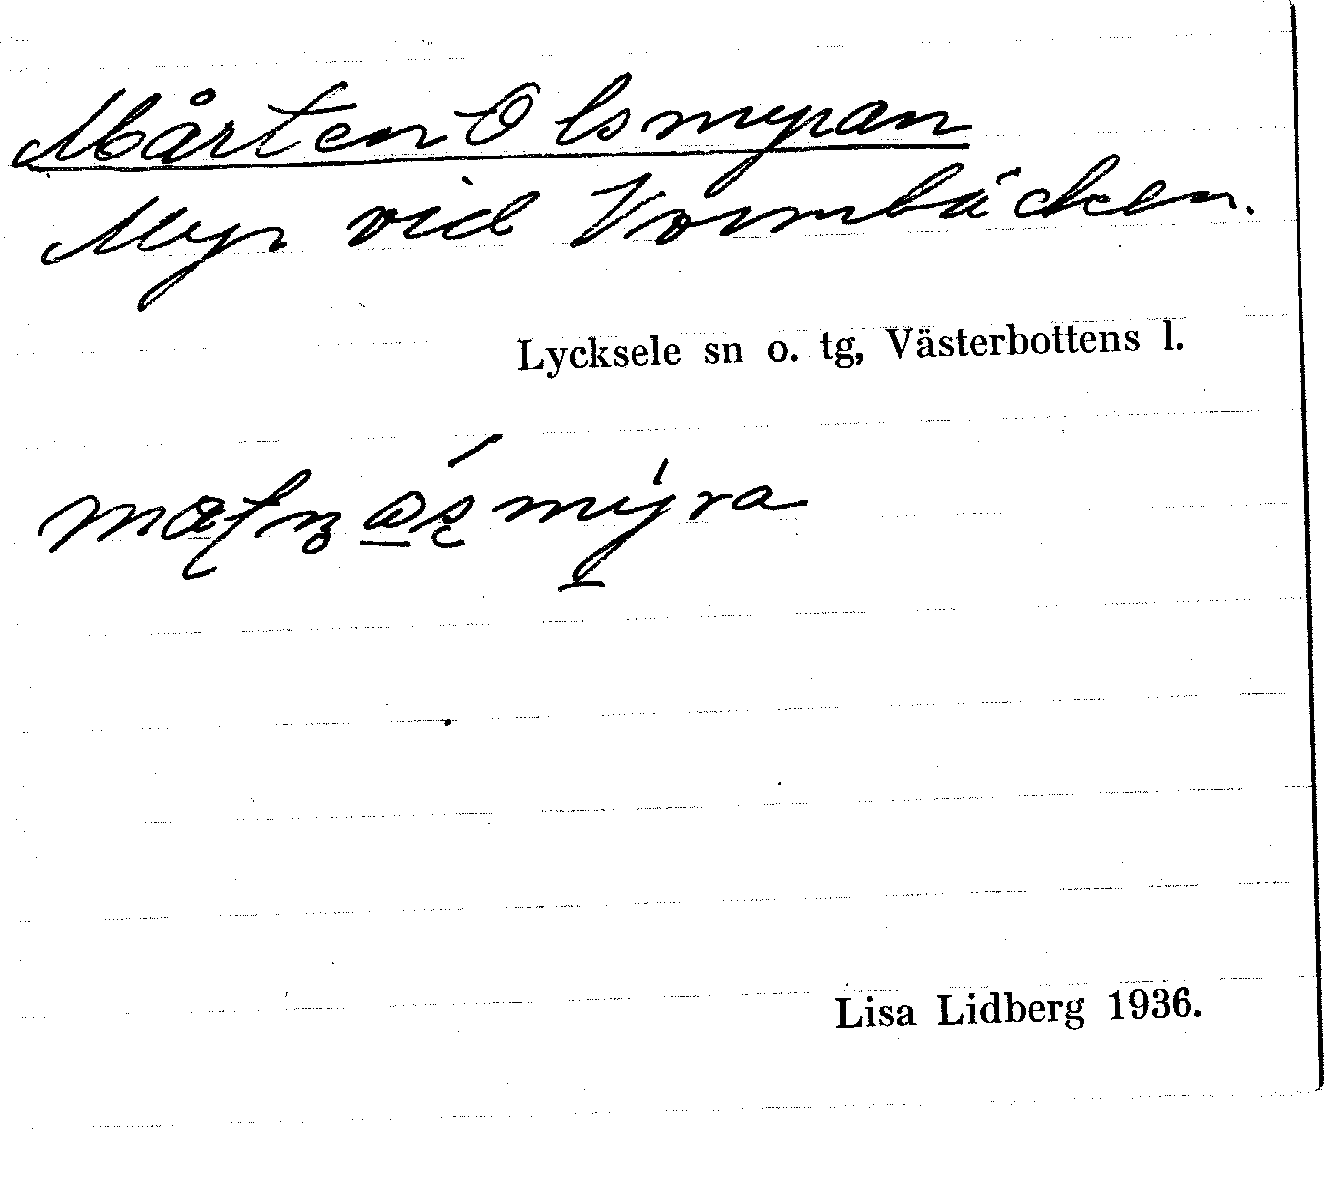 Mårten-Olsmyran
Myr vid Vormbäcken.
Lycksele sn o. tg, Västerbottens l.
Lisa Lidberg 1936.